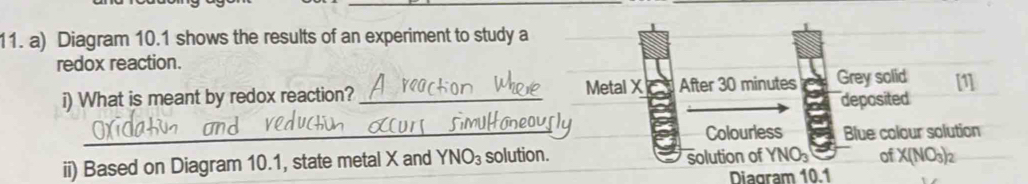 11. a) Diagram 10.1 shows the results of an experiment to study a
redox reaction.
i) What is meant by redox reaction? A reaction where
oxidation and reduction occurs simultaneously
ii) Based on Diagram 10.1, state metal X and YNO₃ solution.
Metal X
After 30 minutes
Grey solid
deposited
[1]
Colourless
solution of YNO₃
Blue colour solution
of X(NO₃)₂
Diagram 10.1